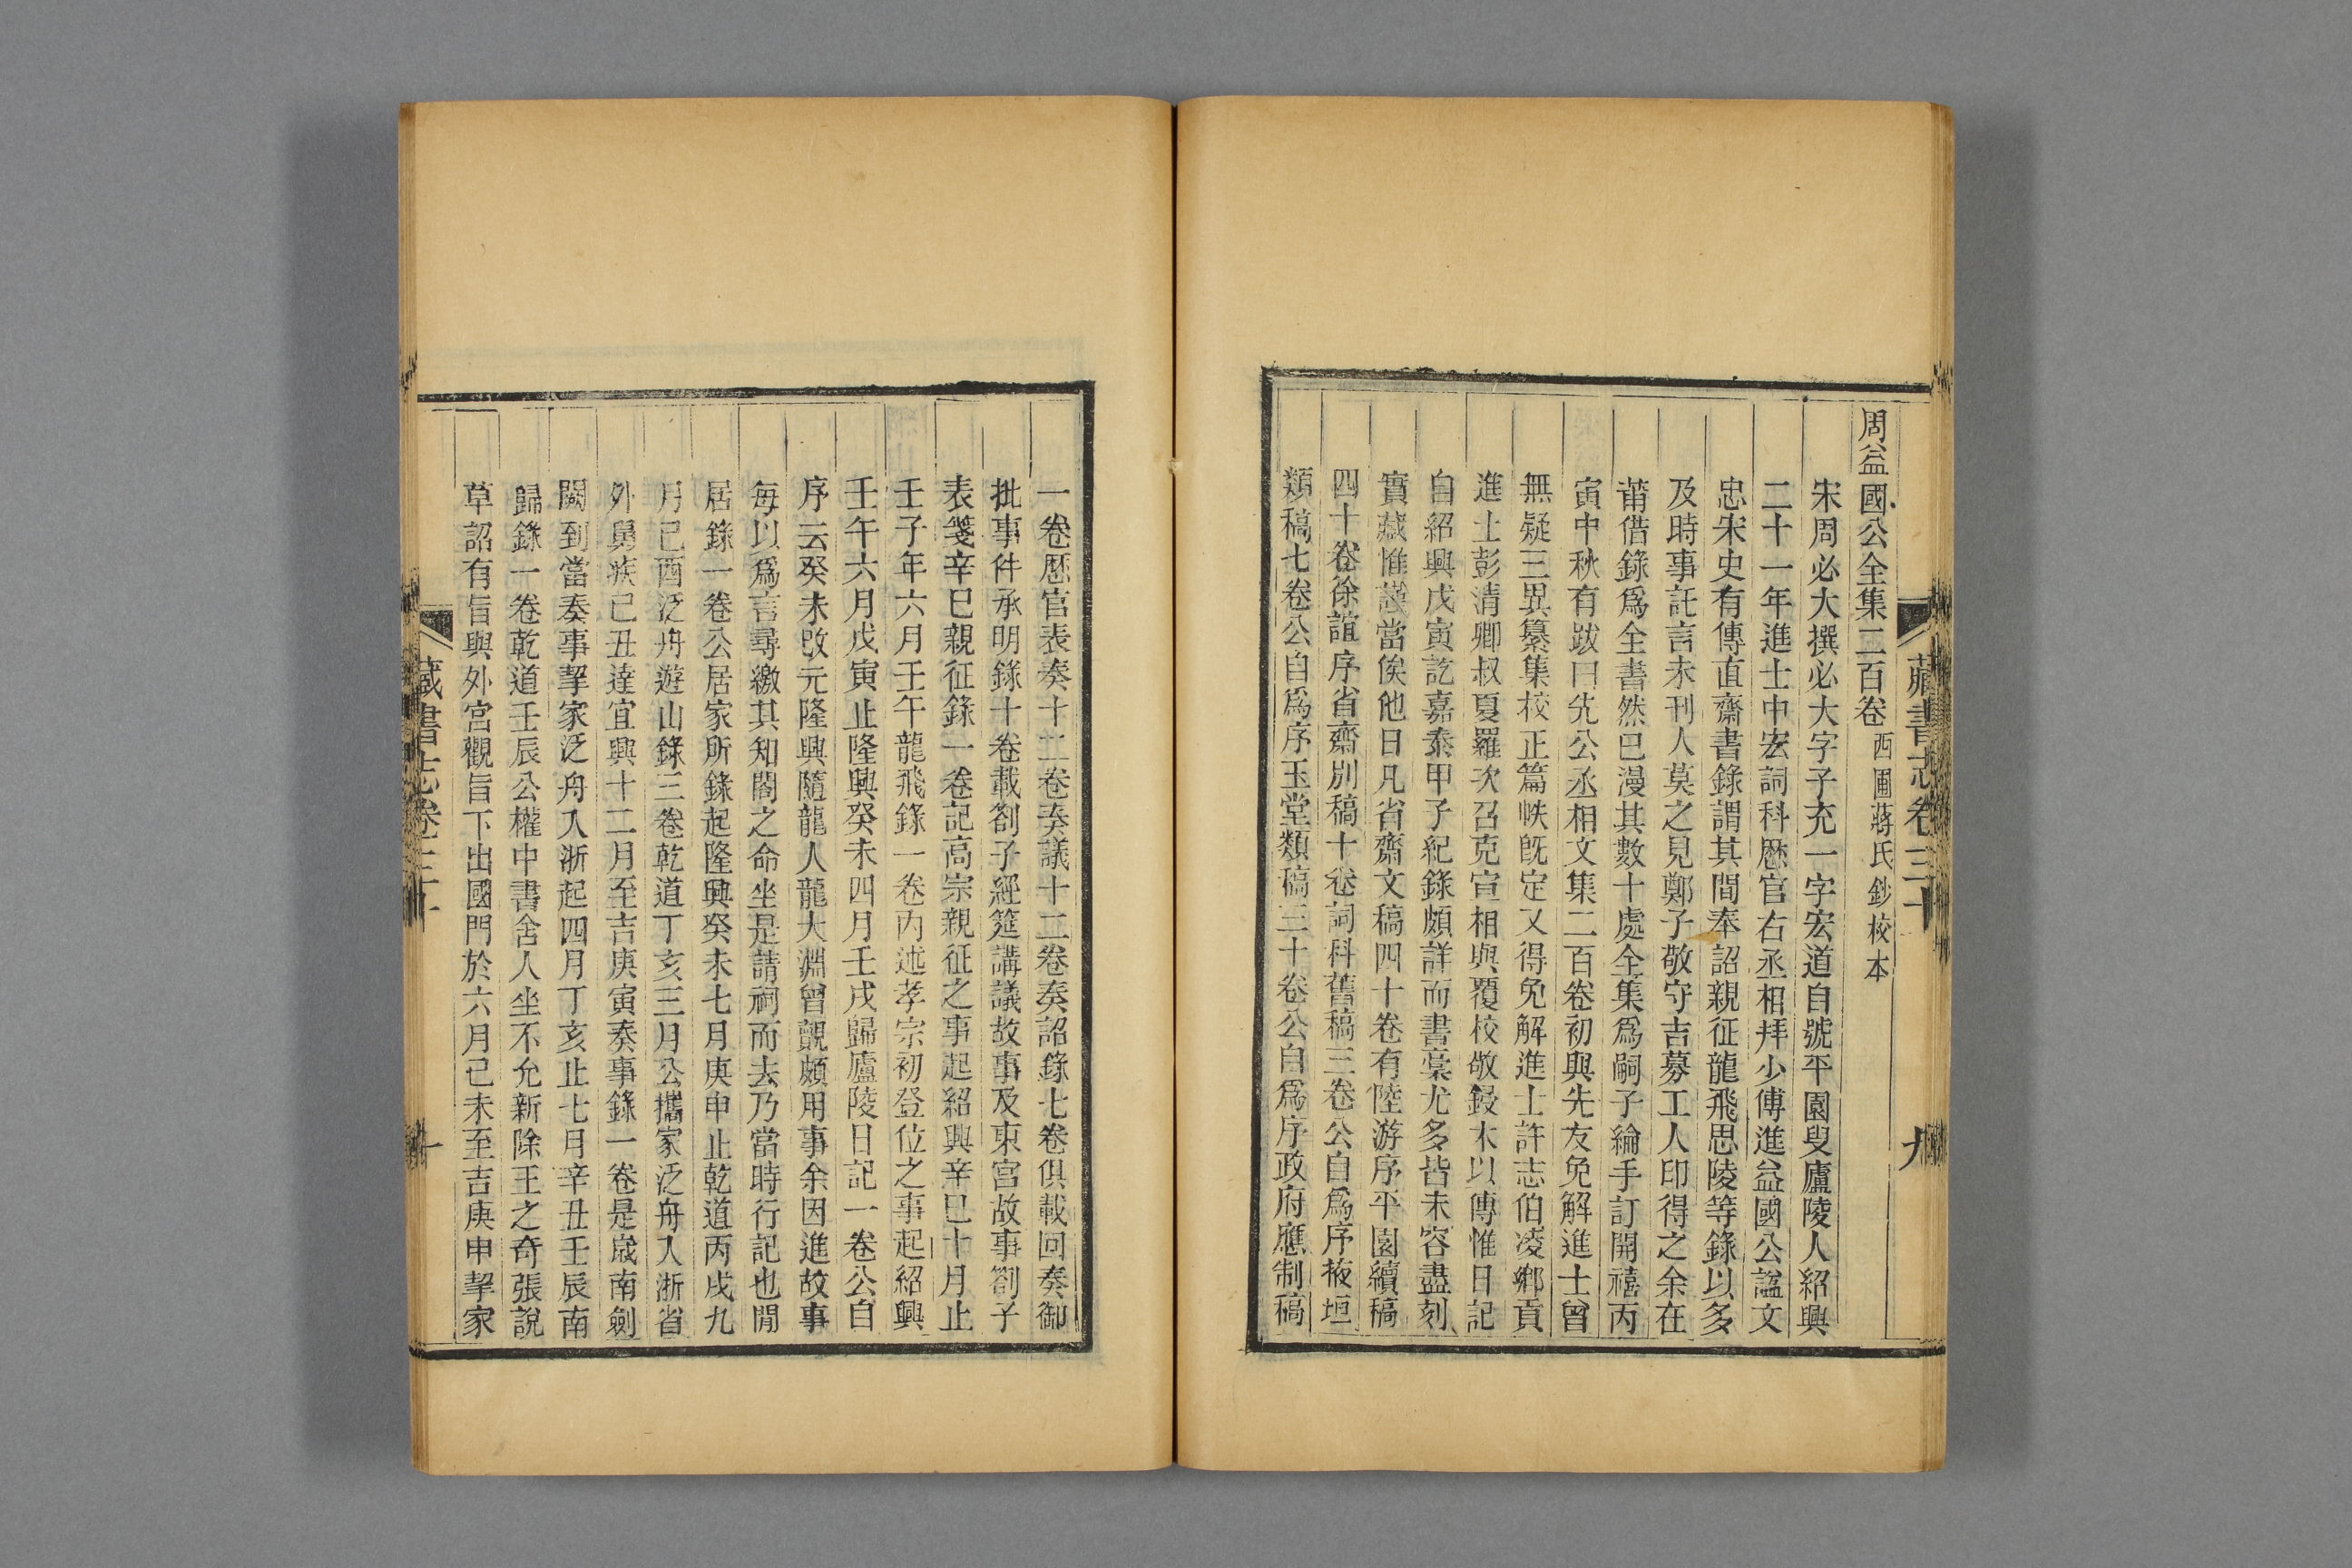 藏書志卷三十
九
周益國公全集二百卷西圃蔣氏鈔校本
宋周必大撰必大字子充一字宏道自號平園叟廬陵人紹興
二十一年進士中宏詞科歷官右丞相拜少傅進益國公諡文
忠宋史有傳直齋書錄謂其間奉詔親征龍飛思陵等錄以多
及時事託言未刊人莫之見鄭子敬守吉募工人印得之余在
莆借錄爲全書然已漫其數十處全集爲嗣子綸手訂開禧丙
寅中秋有跋曰先公丞相文集二百卷初與先友免解進士曾
無疑三異纂集校正篇帙既定又得免解進士許志伯凌鄉貢
進士彭清卿叔夏羅次召克宣相與覆校敬鋟木以傳惟日記
自紹興戊寅訖嘉泰甲子紀錄頗詳而書稾尤多皆未容盡刻
寶藏惟謹當俟他日凡省齋文稿四十卷有陸游序平園續稿
四十卷徐誼序省齋別稿十卷詞科舊稿三卷公自爲序掖垣
類稿七卷公自爲序玉堂類稿三十卷公自爲序政府應制稿
一卷歷官表奏十二卷奏議十二卷奏詔錄七卷俱載回奏御
批事件承明錄十卷載劄子經筵講議故事及東宮故事劄子
表箋辛巳親征錄一卷記高宗親征之事起紹興辛巳十月止
壬子年六月壬午龍飛錄一卷內述孝宗初登位之事起紹興
壬午六月戊寅止隆興癸未四月壬戌歸廬陵日記一卷公自
序云癸未改元隆興隨龍人龍大淵曾覿頗用事余因進故事
每以爲言尋繳其知閤之命坐是請祠而去乃當時行記也閒
居錄一卷公居家所錄起隆興癸未七月庚申止乾道丙戌九
月己酉泛舟遊山錄三卷乾道丁亥三月公攜家泛舟入浙省
外舅疾己丑達宜興十二月至吉庚寅奏事錄一卷是歲南劍
闕到當奏事挈家泛舟入浙起四月丁亥止七月辛丑壬辰南
歸錄一卷乾道壬辰公權中書舍人坐不允新除王之奇張說
草詔有旨與外宮觀旨下出國門於六月己未至吉庚申挈家
藏書志卷三十
十